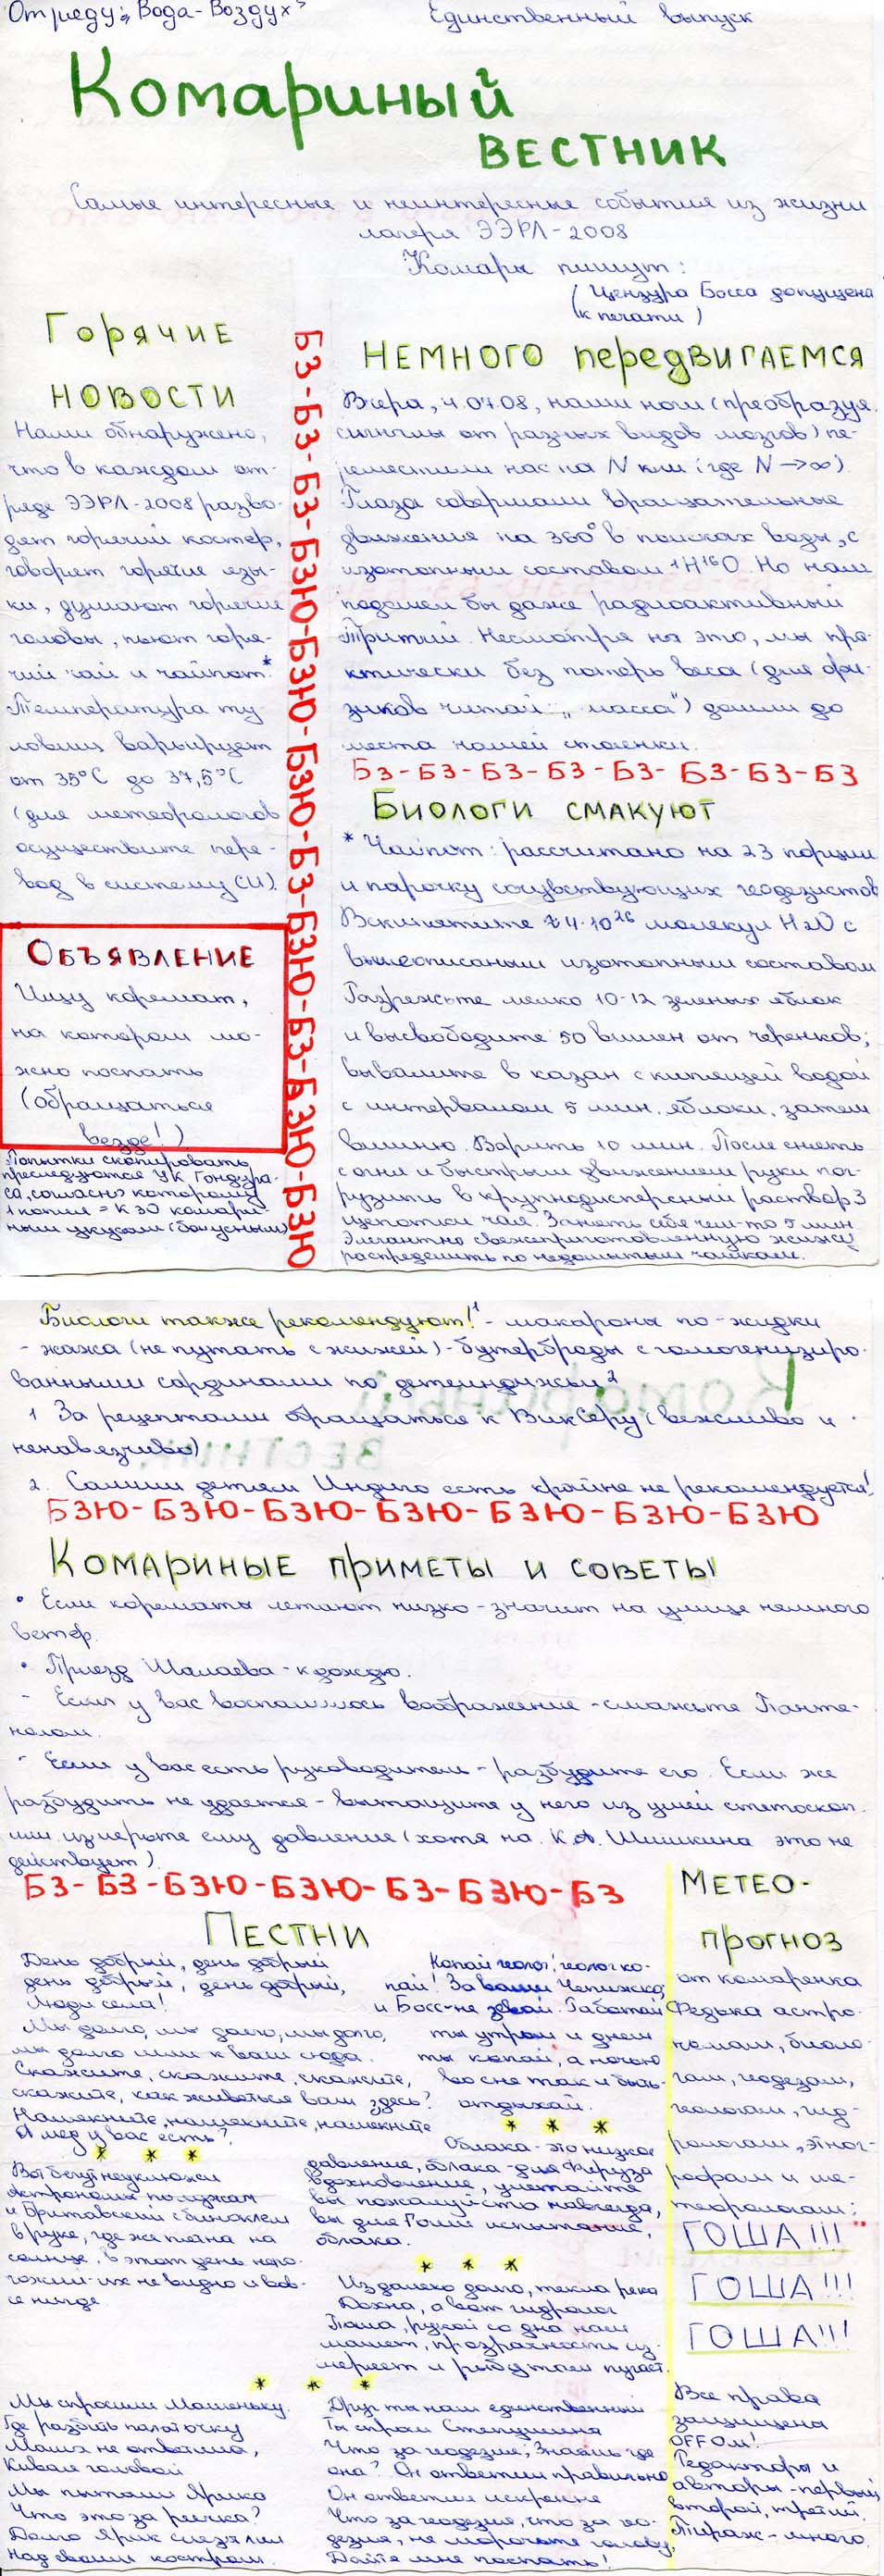 Отряд „Вода-Воздух"
Единственный выпуск
Комариный
ВЕСТНИК
Самые интересные и неинтересные события из жизни
лагеря ЭЭРЛ-2008
Комары пишут:
(Цензура Босса допущена
к печати)
Горячие
НОВОСТИ
Нами обнаружено,
что в каждом от-
ряде ЭЭРЛ-2008 разво-
дят горячий костёр,
говорят горячие язы-
ки, думают горячие
головы, пьют горя-
чий чай и чайпот.*
Температура ту-
ловищ варьирует
от 35°C до 37,5°C
(для метеорологов
осуществите пере-
вод в систему СИ).
ОБЪЯВЛЕНИЕ
Ищу коремат,
на котором мо-
жно поспать
(обращаться
везде!)
Попытки скопировать
преследуются УК Гондура-
са, согласно которому
1 копия = К 30 комари-
ным укусам (бонусным)
БЗ-БЗ-БЗ-БЗЮ-БЗЮ-БЗЮ-БЗЮ-БЗ-БЗЮ-БЗ-БЗЮ-БЗЮ
НЕМНОГО передвигаемся
Вчера, 4.07.08, наши ноги (преобразуя
сигналы от разных видов мозгов) пе-
реместили нас на N км (где N → ∞)
Глаза совершали вращательные
движения на 360° в поисках воды, с
изотопным составом ¹H¹⁶O. Но нам
подошел бы даже радиоактивный
Тритий. Несмотря на это, мы пра-
ктически без потерь веса (для фи-
зиков читай: „масса") дошли до
места нашей стоянки.
БЗ-БЗ-БЗ-БЗ-БЗ-БЗ-БЗ-БЗ
Биологи смакуют
* Чайпот: рассчитано на 23 порции
и парочку сочувствующих геодезистов
Вскипятите 4·10²⁶ молекул H₂O с
вышеописаным изотопным составом
Разрежьте мелко 10-12 зеленых яблок
и высвободите 50 вишен от черенков;
вывалите в казан с кипящей водой
с интервалом 5 мин. яблоки, затем
вишню. Варить 10 мин. После снять
с огня и быстрым движением руки пог-
рузить в крупнодисперсный раствор 3
щепотки чая. Занять себя чем-то 5 мин
Элегантно свежеприготовленную жижу
распределить по недомытым чашкам.
Биологи также рекомендуют!¹ - макароны по-жидки
- жажа (не путать с жижей) - бутерброды с гомогенизиро-
ванными сардинами по детеиндижьи²
1 За рецептами обращаться к ВикСеру (вежливо и
ненавязчиво)
2. Самим детям Индиго есть крайне не рекомендуется!
БЗЮ-БЗЮ-БЗЮ-БЗЮ-БЗЮ-БЗЮ-БЗЮ
Комариные приметы и советы
• Если корематы летают низко - значит на улице немного
ветер.
• Приезд Шалаева - к дождю.
- Если у вас воспалилось воображение - смажьте Панте-
нолом.
- Если у вас есть руководители - разбудите его. Если же
разбудить не удается - вытащите у него из ушей стетоскоп
или измерьте ему давление (хотя на К.А. Шишкина это не
действует)
БЗ-БЗ-БЗЮ-БЗЮ-БЗ-БЗЮ-БЗ
Пестни
День добрый, день добрый
день добрый, день добрый,
Люди села!
Мы долго, мы долго, мы долго,
мы долго шли к вам сюда.
Скажите, скажите, скажите,
скажите, как живется вам здесь?
Намекните, намекните, намекните
А мед у вас есть?
* * *
Вот бегут неуклюже
Астрономы по лужам
и Бритавский с биноклем
в руке, где же пятна на
солнце. В этот день
их не видно и вов-
се нигде
Копай геолог, геолог ко-
пай! За вами Чепижко
и Босс - не зевай. Работай
ты утром и днем
ты копай, а ночью
во сне так и быть-
отдыхай.
* * *
Облака - это низкое
давление, облака - для Феруза
вдохновение, улетайте
вы пожалуйста навсегда,
вы для Гоши испытание,
облака.
* * *
Издалека долго, текла река
а вот гидролог
Паша, рукой со дна нам
машет, прозрачность из-
меряет и рыбу там пугает.
* * *
Мы спросили Машеньку.
Где разбить палаточку
Маша не ответила,
Кивая головой
Мы пытали Ярика
Что это за речка?
Долго Ярик
Над своим костром.
Друг ты наш единственный
Ты спроси
Что за геодезия, Знаешь где
она? Он ответил правильно
Он ответил искренне
Что за геодезия, что за ге-
дезия, не морочьте голову,
Дайте мне поспать!
МЕТЕО-
прогноз
от комаренка
Федька астро-
номам, биоло-
гам, геодезам,
геологам, гид-
рологам, этног-
рафам и ме-
теорологам:
ГОША!!!
ГОША!!!
ГОША!!!
Все права
защищена
OFFОм!
Редакторы и
авторы - первый,
второй, третий.
Тираж - много.